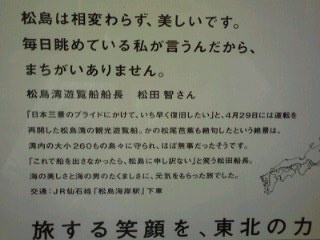 松島は相変わらず、美しいです。
毎日眺めている私が言うんだから、
まちがいありません。
松島湾遊覧船船長　松田 智さん
『日本三景のプライドにかけて、いち早く復旧したい』と、4月29日には運転を
再開した松島湾の観光遊覧船。かの松尾芭蕉も絶句したという絶景は、
湾内の大小260もの島々に守られ、ほぼ無事だったそうです。
『これで船を出さなかったら、松島に申し訳ない』と笑う松田船長。
海の美しさと海の男のたくましさに、元気をもらった旅でした。
交通：JR仙石線『松島海岸駅』下車
旅する笑顔を、東北の力